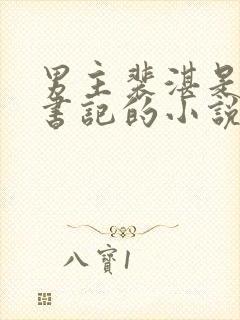 男主裴湛是
書記的小説
八寶1